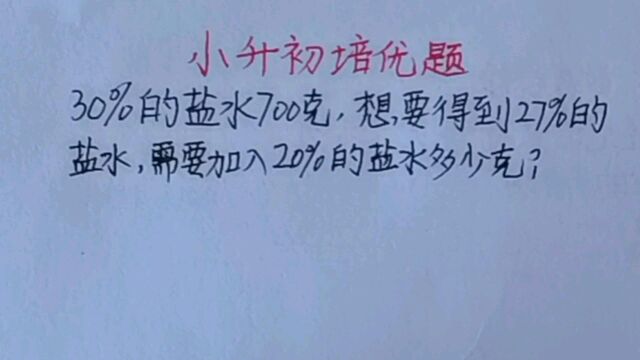 小升初培优题
30%的盐水700克,想要得到27%的
盐水,需要加入20%的盐水多少克?